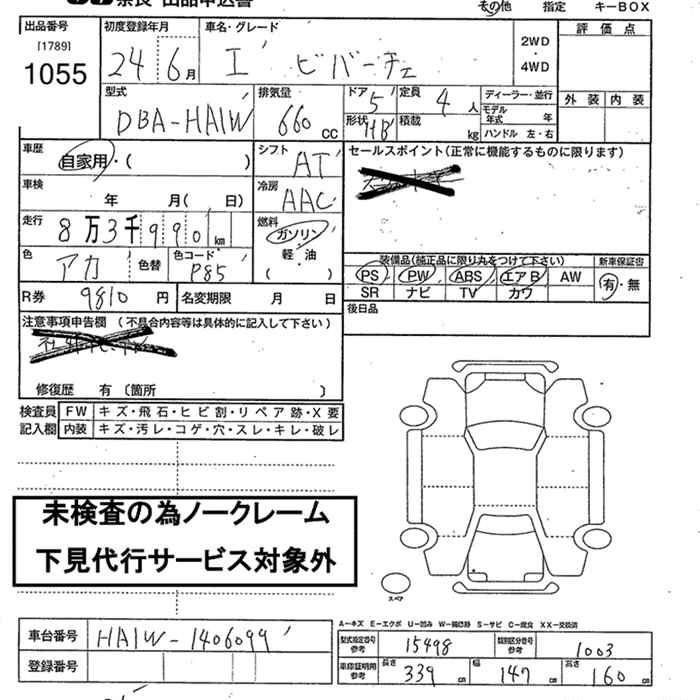 奈良 出品申込書
その他 指定 キーBOX
出品番号 [1789] 1055
初度登録年月 24年6月
車名・グレード i ビバーチェ
2WD・4WD
評価点
外装 内装
型式 DBA-HA1W
排気量 660cc
ドア 5 形状 HB
定員 4人 積載 kg
ディーラー・並行
モデル年式 年
ハンドル 左・右
車歴 自家用・( )
シフト AT
セールスポイント(正常に機能するものに限ります)
車検 年 月( 日)
冷房 AAC
走行 8万3千990km
燃料 ガソリン 軽油 ( )
色 アカ 色替 色コード P85
装備品(純正品に限り丸をつけて下さい) 新車保証書
PS PW ABS エアB AW 有・無
SR ナビ TV カワ
R券 9810円 名変期限 月 日
後日品
注意事項申告欄 (不具合内容等は具体的に記入して下さい)
修復歴 有 〔箇所 〕
検査員記入欄
FW キズ・飛石・ヒビ割・リペア跡・X要
内装 キズ・汚レ・コゲ・穴・スレ・キレ・破レ
未検査の為ノークレーム
下見代行サービス対象外
スペア
A-キズ E-エクボ U-凹み W-補修跡 S-サビ C-腐食 XX-交換済
車台番号 HA1W-1406099
型式指定番号 参考 15498 類別区分番号 参考 1003
登録番号
車印証明用 参考 長さ 339cm 幅 147cm 高さ 160cm